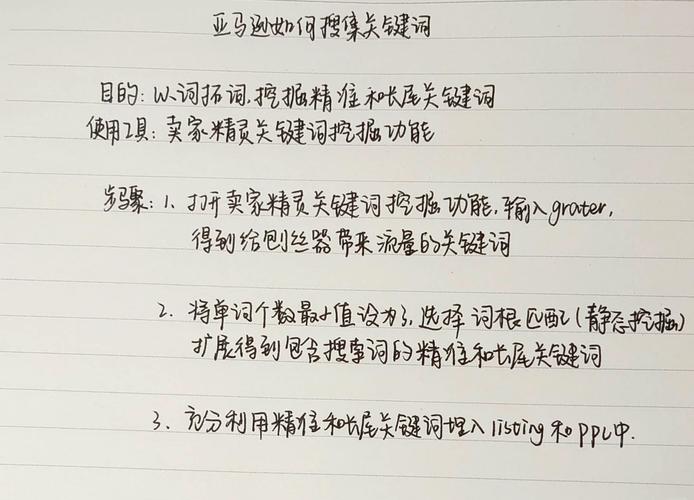 亚马逊如何搜集关键词
目的：以词拓词，挖掘精准和长尾关键词
使用工具：卖家精灵关键词挖掘功能
步骤：1、打开卖家精灵关键词挖掘功能，输入grater，
得到给刨丝器带来流量的关键词
2、将单词个数最小值设为3，选择词根匹配（静态挖掘）
扩展得到包含搜索词的精准和长尾关键词
3、充分利用精准和长尾关键词埋入listing和ppc中.